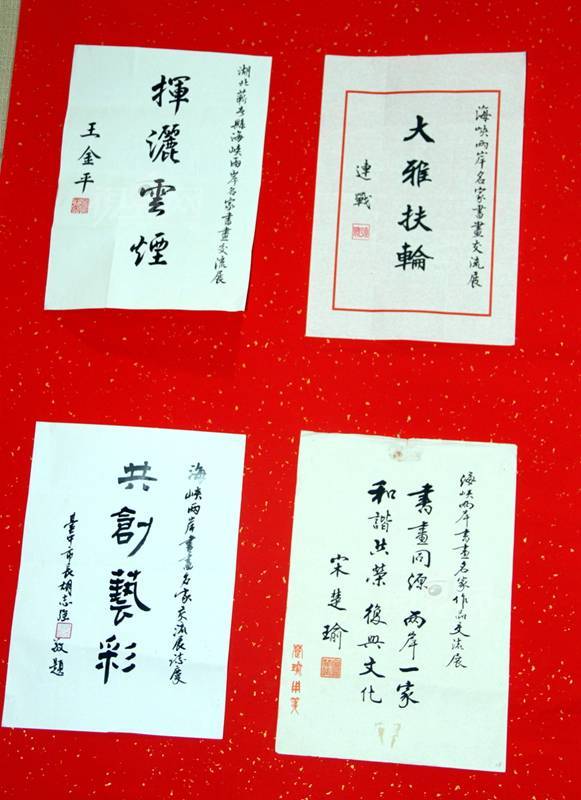 湖北蘄春縣海峽兩岸名家書畫交流展
揮灑雲煙
王金平
海峽兩岸名家書畫交流展
大雅扶輪
連戰
海峽兩岸書畫名家交流展誌慶
共創藝彩
臺中市長胡志強 敬題
海峽兩岸書畫名家作品交流展
書畫同源 兩岸一家
和諧共榮 復興文化
宋楚瑜